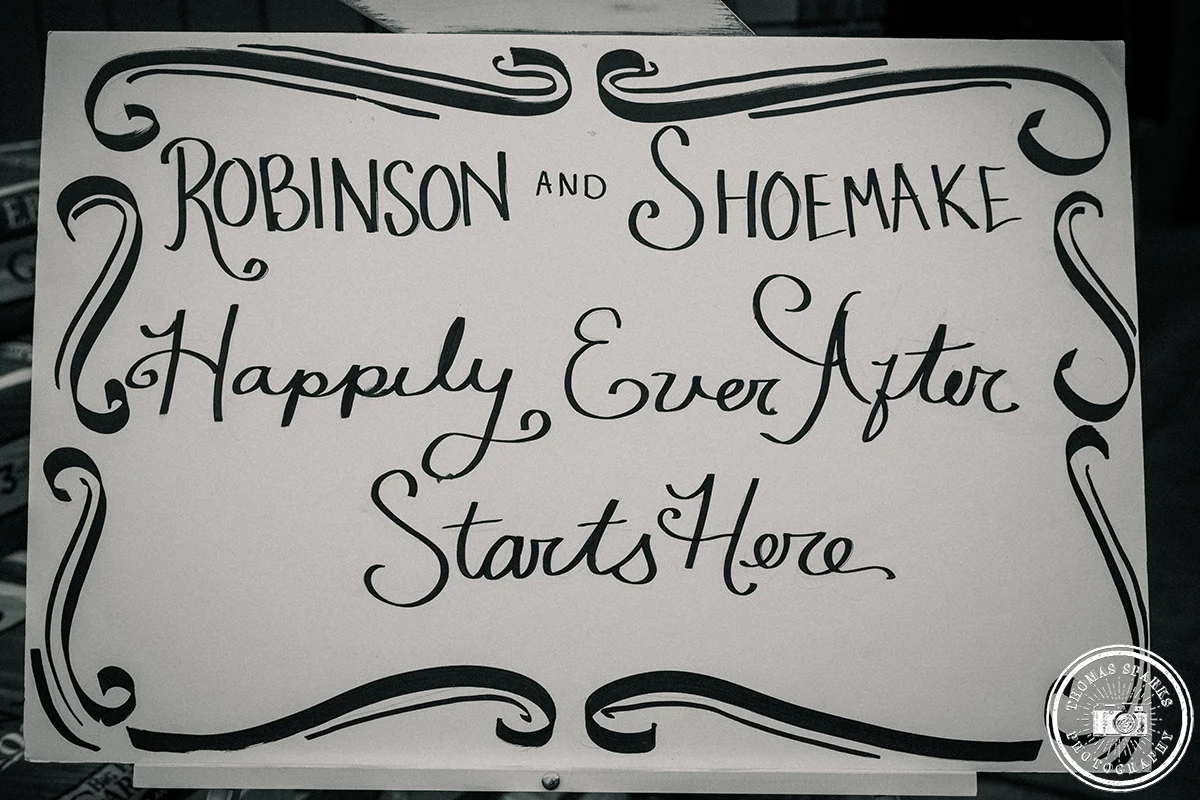 ROBINSON AND SHOEMAKE
Happily Ever After
Starts Here
THOMAS SPARKS
PHOTOGRAPHY